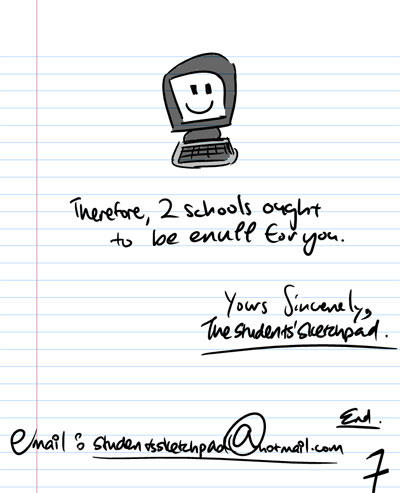 Therefore, 2 schools ought
to be enuff for you.
Yours Sincerely,
The students' sketchpad.
End.
email : studentssketchpad@hotmail.com
7